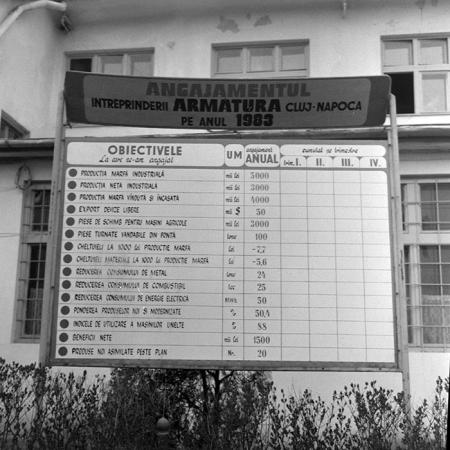 ANGAJAMENTUL
INTREPRINDERII ARMATURA CLUJ-NAPOCA
PE ANUL 1983
OBIECTIVELE La care ne-am angajat U M angajament ANUAL cumulat pe trimestre trim. I. II. III. IV.
PRODUCȚIA MARFĂ INDUSTRIALĂ mii lei 5000
PRODUCȚIA NETĂ INDUSTRIALĂ mii lei 3000
PRODUCȚIA MARFĂ VÎNDUTĂ ȘI ÎNCASATĂ mii lei 4000
EXPORT DEVIZE LIBERE mii $ 50
PIESE DE SCHIMB PENTRU MAȘINI AGRICOLE mii lei 3000
PIESE TURNATE VANDABILE DIN FONTĂ tone 100
CHELTUIELI LA 1000 LEI PRODUCȚIE MARFĂ lei -7,7
CHELTUIELI MATERIALE LA 1000 LEI PRODUCȚIE MARFĂ lei -5,6
REDUCEREA CONSUMULUI DE METAL tone 24
REDUCEREA CONSUMULUI DE COMBUSTIBIL tcc 25
REDUCEREA CONSUMULUI DE ENERGIE ELECTRICĂ MWh 50
PONDEREA PRODUSELOR NOI ȘI MODERNIZATE % 50,4
INDICELE DE UTILIZARE A MAȘINILOR UNELTE % 88
BENEFICII NETE mii lei 1500
PRODUSE NOI ASIMILATE PESTE PLAN Nr. 20